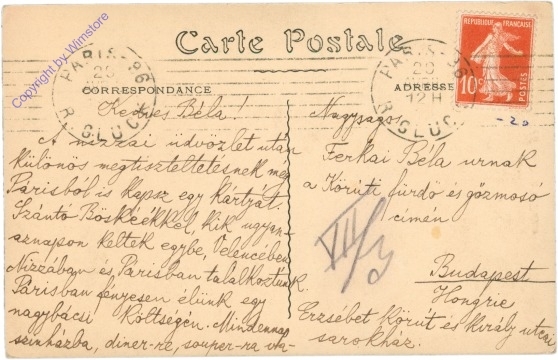 Copyright by Wimstore
Carte Postale
REPUBLIQUE FRANÇAISE
10c
POSTES
PARIS 96
20
12 H
R. GLUCK
PARIS 96
20
R. GLUCK
CORRESPONDANCE
ADRESSE
- 20
Kedves Béla!
A nizzai üdvözlet után
különös megtiszteltetésnek meg
Párisból is kapsz egy kártyát.
Szántó Böskéékkel, kik ugyan-
aznapon keltek egybe, Velencében
Nizzában és Párisban találkoztunk.
Párisban fényesen élünk egy
nagybácsi költségén. Mindennap
színházba, diner-re, souper-ra va-
Nagyságos
Ferkai Béla urnak
a Körúti fürdő és gőzmosó
címén
VII/3
Budapest
Hongrie
Erzsébet Körút és király utcai
sarokház.